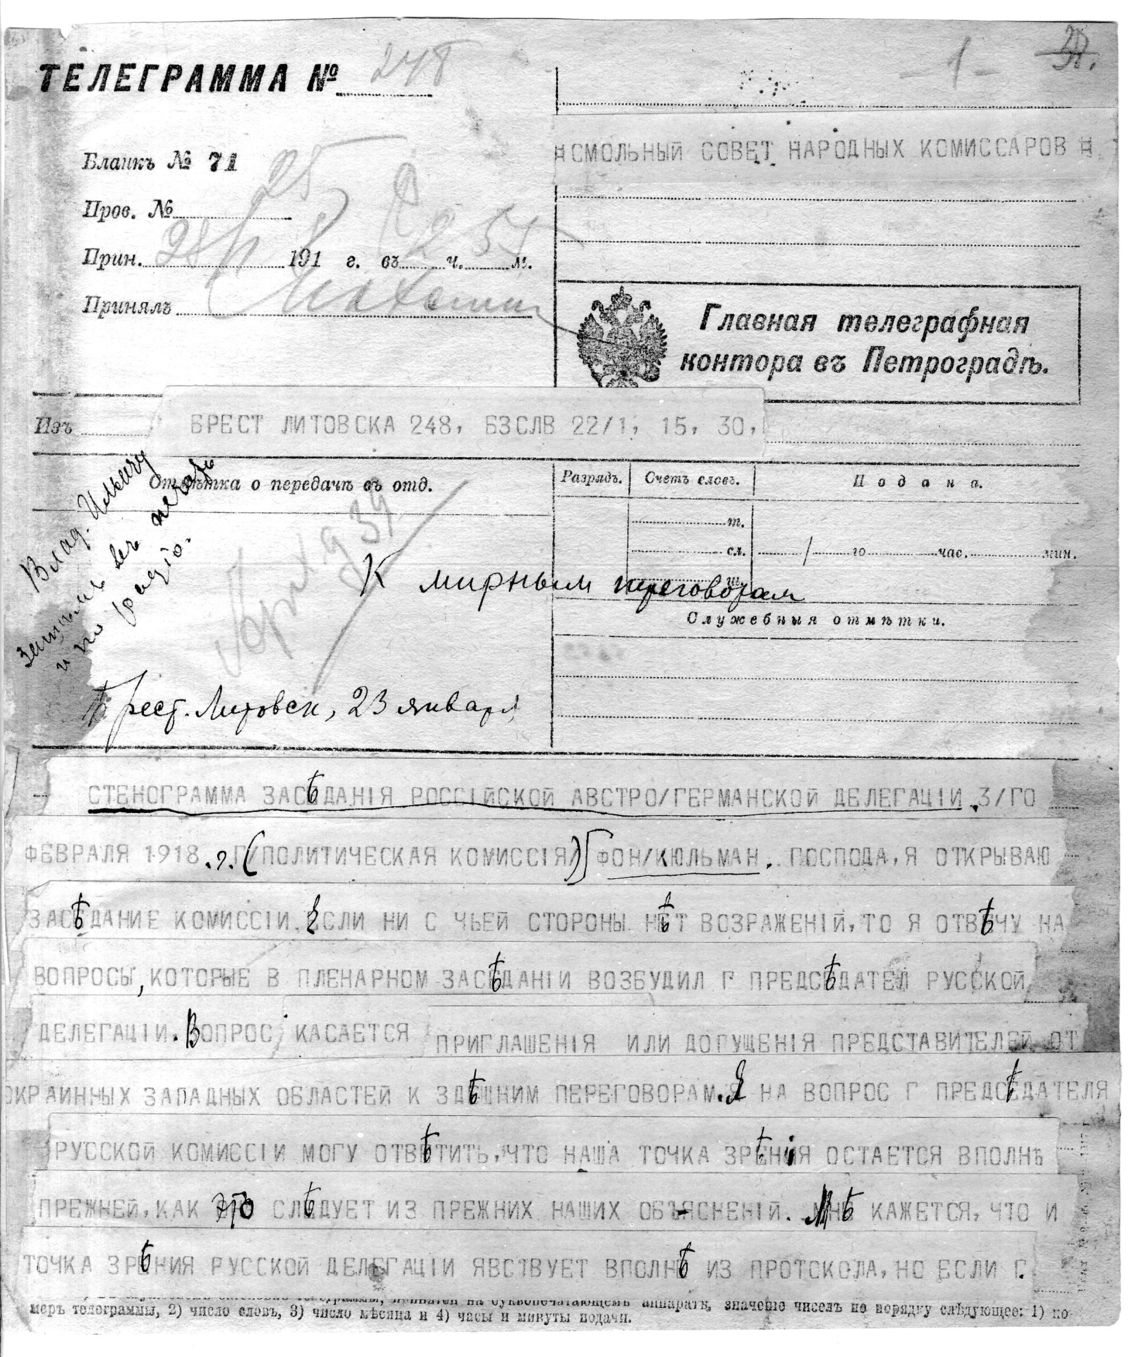 ТЕЛЕГРАММА № 248
— 1 —
СМОЛЬНЫЙ СОВЕТ НАРОДНЫХ КОМИССАРОВ
Бланкъ № 71
Пров. №
Прин. 28/1 191 г. въ 2 ч. 55 м.
Принялъ
Главная телеграфная
контора въ Петроградѣ.
Изъ БРЕСТ ЛИТОВСКА 248, БЗСЛВ 22/1, 15, 30,
Отмѣтка о передачѣ въ отд.
Разрядъ. Счетъ словъ. Подана.
т.
сл. / го час. мин.
ш.
Служебныя отмѣтки.
Влад. Ильичу
въ печать
и по радіо.
К мирным переговорам
Брест-Литовск, 23 января
СТЕНОГРАММА ЗАСѢДАНІЯ РОССІЙСКОЙ АВСТРО/ГЕРМАНСКОЙ ДЕЛЕГАЦІИ. 3/ГО
ФЕВРАЛЯ 1918 г. (ПОЛИТИЧЕСКАЯ КОМИССІЯ) ФОН/КЮЛЬМАН. ГОСПОДА, Я ОТКРЫВАЮ
ЗАСѢДАНИЕ КОМИССІИ. ЕСЛИ НИ С ЧЬЕЙ СТОРОНЫ НѢТ ВОЗРАЖЕНІЙ, ТО Я ОТВѢЧУ НА
ВОПРОСЫ, КОТОРЫЕ В ПЛЕНАРНОМ ЗАСѢДАНІИ ВОЗБУДИЛ Г ПРЕДСѢДАТЕЛ РУССКОЙ
ДЕЛЕГАЦІИ. ВОПРОС КАСАЕТСЯ ПРИГЛАШЕНІЯ ИЛИ ДОГУЩЕНІЯ ПРЕДСТАВИТЕЛЕЙ ОТ
ОКРАИННЫХ ЗАПАДНЫХ ОБЛАСТЕЙ К ЗДѢШНИМ ПЕРЕГОВОРАМ. Я НА ВОПРОС Г ПРЕДСѢДАТЕЛЯ
РУССКОЙ КОМИССІИ МОГУ ОТВѢТИТЬ, ЧТО НАША ТОЧКА ЗРѢНИЯ ОСТАЕТСЯ ВПОЛНѢ
ПРЕЖНЕЙ, КАК это СЛѢДУЕТ ИЗ ПРЕЖНИХ НАШИХ ОБЪЯСНЕНІЙ. МНѢ КАЖЕТСЯ, ЧТО И
ТОЧКА ЗРѢНИЯ РУССКОЙ ДЕЛЕГАЦІИ ЯВСТВУЕТ ВПОЛНѢ ИЗ ПРОТОКОЛА, НО ЕСЛИ Г.
буквопечатающемъ аппаратѣ, значеніе чиселъ по порядку слѣдующее: 1) но-
меръ телеграммы, 2) число словъ, 3) число мѣсяца и 4) часы и минуты подачи.